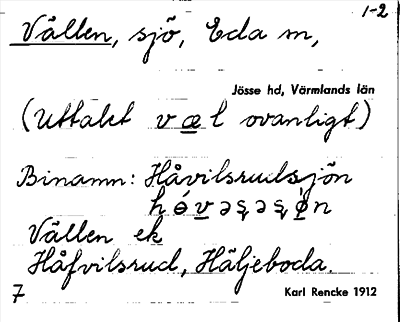 1-2
Vällen, sjö, Eda sn,
Jösse hd, Värmlands län
(Uttalet væl ovanligt)
Binamn: Håvilsrudsjön
Vällen ek
Håfvilsrud, Häljeboda.
7 Karl Rencke 1912